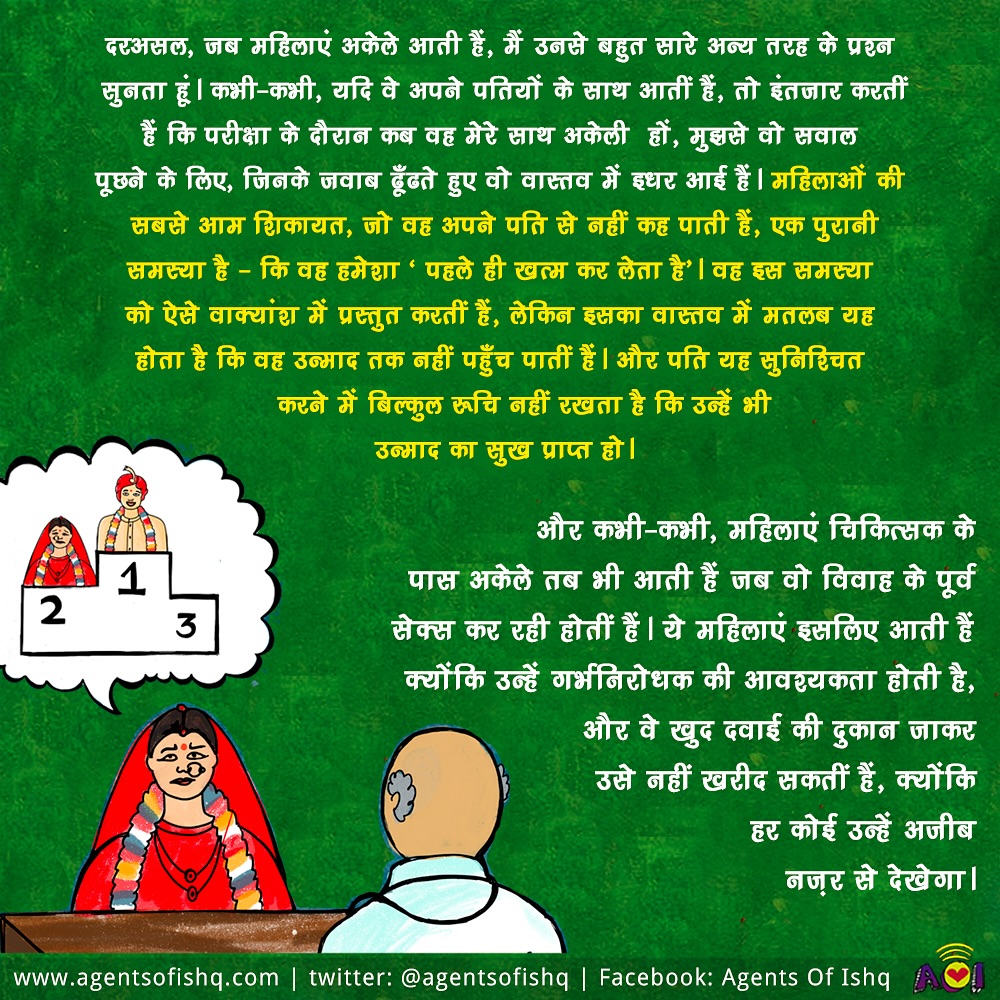 दरअसल, जब महिलाएं अकेले आती हैं, मैं उनसे बहुत सारे अन्य तरह के प्रश्न
सुनता हूं। कभी-कभी, यदि वे अपने पतियों के साथ आतीं हैं, तो इंतजार करतीं
हैं कि परीक्षा के दौरान कब वह मेरे साथ अकेली हों, मुझसे वो सवाल
पूछने के लिए, जिनके जवाब ढूँढते हुए वो वास्तव में इधर आई हैं। महिलाओं की
सबसे आम शिकायत, जो वह अपने पति से नहीं कह पाती हैं, एक पुरानी
समस्या है - कि वह हमेशा ‘ पहले ही खत्म कर लेता है’। वह इस समस्या
को ऐसे वाक्यांश में प्रस्तुत करतीं हैं, लेकिन इसका वास्तव में मतलब यह
होता है कि वह उन्माद तक नहीं पहुँच पातीं हैं। और पति यह सुनिश्चित
करने में बिल्कुल रूचि नहीं रखता है कि उन्हें भी
उन्माद का सुख प्राप्त हो।
और कभी-कभी, महिलाएं चिकित्सक के
पास अकेले तब भी आती हैं जब वो विवाह के पूर्व
सेक्स कर रही होतीं हैं। ये महिलाएं इसलिए आती हैं
क्योंकि उन्हें गर्भनिरोधक की आवश्यकता होती है,
और वे खुद दवाई की दुकान जाकर
उसे नहीं खरीद सकतीं हैं, क्योंकि
हर कोई उन्हें अजीब
नज़र से देखेगा।
1
2
3
www.agentsofishq.com | twitter: @agentsofishq | Facebook: Agents Of Ishq
AOI